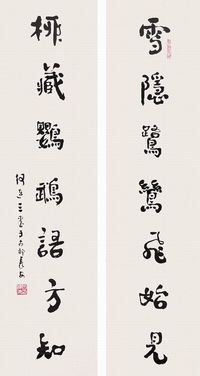 雪隱鷺鷥飛始見
柳藏鸚鵡語方知